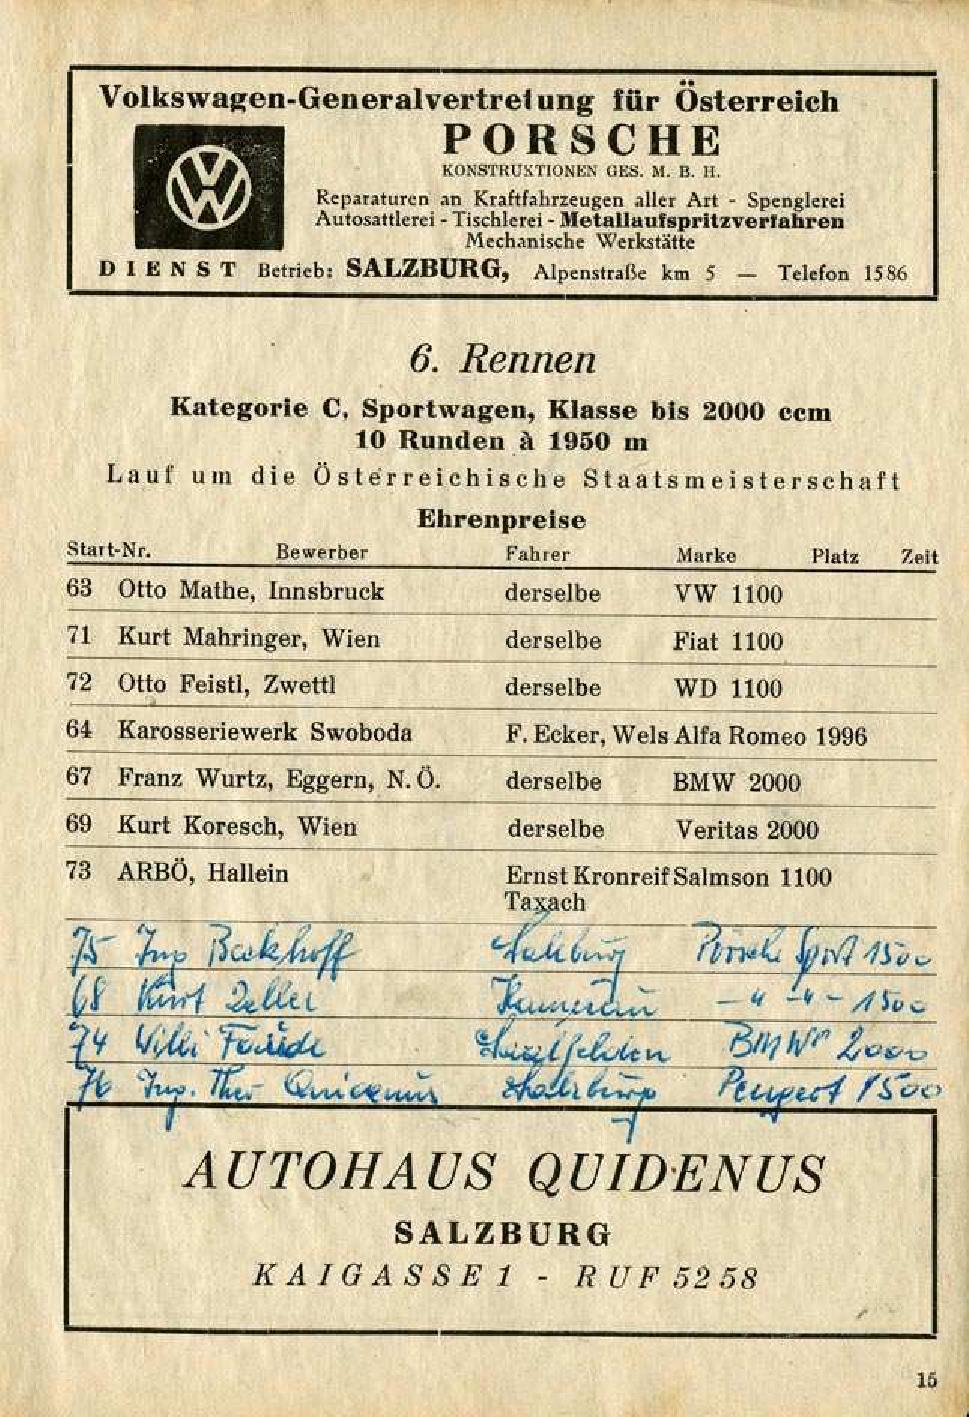 Volkswagen-Generalvertretung für Österreich
PORSCHE
KONSTRUKTIONEN GES. M. B. H.
Reparaturen an Kraftfahrzeugen aller Art - Spenglerei
Autosattlerei - Tischlerei - Metallaufspritzverfahren
Mechanische Werkstätte
DIENST Betrieb: SALZBURG, Alpenstraße km 5 — Telefon 1586
6. Rennen
Kategorie C, Sportwagen, Klasse bis 2000 ccm
10 Runden à 1950 m
Lauf um die Österreichische Staatsmeisterschaft
Ehrenpreise
Start-Nr. Bewerber Fahrer Marke Platz Zeit
63 Otto Mathe, Innsbruck derselbe VW 1100
71 Kurt Mahringer, Wien derselbe Fiat 1100
72 Otto Feistl, Zwettl derselbe WD 1100
64 Karosseriewerk Swoboda F. Ecker, Wels Alfa Romeo 1996
67 Franz Wurtz, Eggern, N. Ö. derselbe BMW 2000
69 Kurt Koresch, Wien derselbe Veritas 2000
73 ARBÖ, Hallein Ernst Kronreif Salmson 1100
Taxach
75 Ing Salzburg Porsche Sport 1500
68 Kurt Zeller -"- -"- 1500
74 Willi Saalfelden BMW 2000
76 Ing. Theo Quidenus Salzburg Peugeot 1500
AUTOHAUS QUIDENUS
SALZBURG
KAIGASSE 1 - RUF 52 58
15